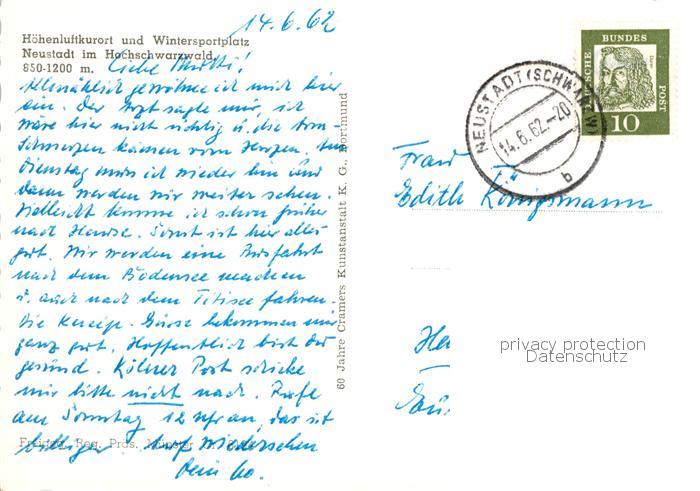 14.6.62
Höhenluftkurort und Wintersportplatz
Neustadt im Hochschwarzwald
850-1200 m.
Liebe Mutti!
Allmählich gewöhne ich mich hier
ein. Der Arzt sagte mir, ich
wäre hier nicht richtig u. die Arm-
schmerzen kämen vom Herzen. Am
Dienstag muss ich wieder hin und
dann werden wir weiter sehen.
Vielleicht komme ich schon früher
nach Hause. Sonst ist hier alles
gut. Wir werden eine Ausfahrt
nach dem Bodensee machen
u. auch nach dem Titisee fahren.
Die bekommen mir
ganz gut. Hoffentlich bist Du
gesund. Kölner Post schicke
mir bitte nicht nach. Rufe
am Sonntag 12 Uhr an, das ist
billiger. Auf Wiedersehen
Dein
60 Jahre Cramers Kunstanstalt K. G., Dortmund
DEUTSCHE BUNDES POST
10
NEUSTADT (SCHWARZW)
14.6.62.-20
b
Frau
Edith Königsmann
privacy protection
Datenschutz